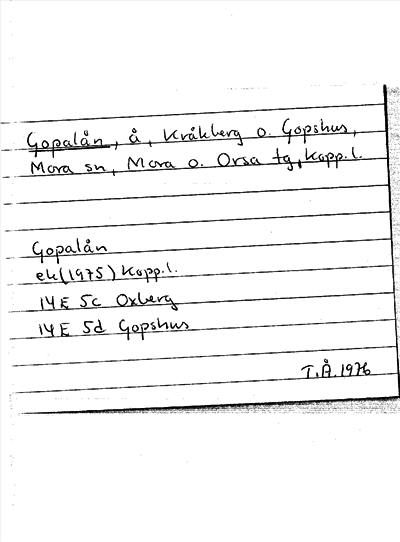 Gopalån, å, Kråkberg o. Gopshus,
Mora sn, Mora o. Orsa tg, Kopp.l.
Gopalån
ek (1975) Kopp.l.
14E 5c Oxberg
14E 5d Gopshus
T.Å. 1976